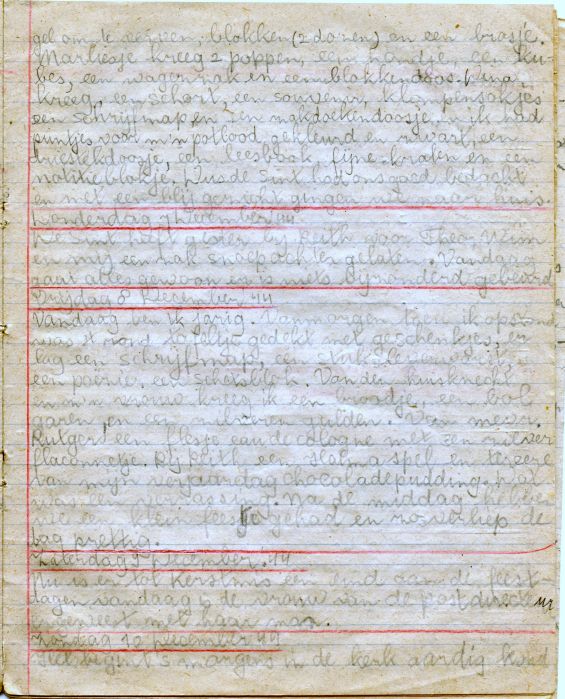 gel om te weven, blokken (2 dozen) en een brosje.
Marliesje kreeg 2 poppen, een mandje, een ku-
bes, een wagenzak en een blokkendoos. Puna
kreeg, een schort, een souvenir, klompensokjes
een schrijfmap en zakdoekendoosje en ik had
puntjes voor m'n potlood, gekleurd en zwart, een
driestekdoosje, een leesboek, fijne kralen en een
notitieblokje. Dus de Sint had ons goed bedacht
en met een blij gezicht gingen we naar huis.
Donderdag 7 December '44
De Sint heeft gister bij Keith voor Theo, Wim
en mij een zak snoep achter gelaten. Vandaag
gaat alles gewoon en is niets bijzonders gebeurd
Vrijdag 8 December '44
Vandaag ben ik jarig. Vanmorgen toen ik opstond
was 't rond tafeltje gedekt met geschenkjes, er
lag een schrijfmap, een
een poëzie. een schetsblok. Van den huisknecht
en z'n vrouw kreeg ik een broodje, een bol
garen, en een zilveren gulden. Van mevr.
Rutgers een flesje eau de cologne met een zilver
flaconnetje. Bij Keith een Halma spel en ter ere
van mijn verjaardag chocoladepudding. Dat
was een verrassing. Na de middag hebben
we een klein feestje gehad en zo verliep de
dag prettig.
Zaterdag 9 December '44
Nu is er tot Kerstmis een eind aan de feest-
dagen vandaag is de vrouw van de postdirecteur
met haar man.
Zondag 10 December '44
Het begint 's morgens in de kerk aardig koud